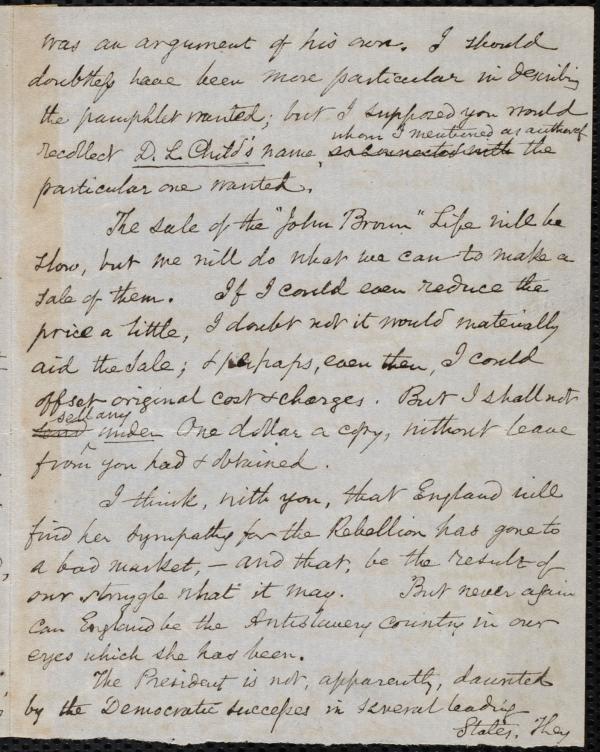 was an argument of his own. I should
doubtless have been more particular in describing
the pamphlet wanted; but I supposed you would
whom I mentioned as author of
recollect D. L. Child's name, so connected with the
particular one wanted.
The sale of the "John Brown" Life will be
slow, but we will do what we can to make a
sale of them. If I could even reduce the
price a little, I doubt not it would materially
aid the sale; & perhaps, even then, I could
offset original cost & charges. But I shall not
sell any
under One dollar a copy, without leave
from you had & obtained.
I think, with you, that England will
find her sympathy for the Rebellion has gone to
a bad market, – and that, be the result of
our struggle what it may. But never again
can England be the Antislavery country in our
eyes which she has been.
The President is not, apparently, daunted
by the Democratic successes in several leading
States. They